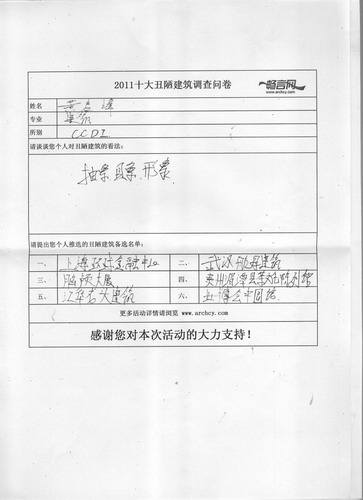 2011十大丑陋建筑调查问卷
畅言网
www.archcy.com
姓名
专业 建筑
所别 CCDI
请谈谈您个人对丑陋建筑的看法：
抽象 具象 形象
请提出您个人推选的丑陋建筑备选名单：
一、上海环球金融中心 二、武汉 建筑
三、大厦 四、贵州湄潭县茶文化陈列馆
五、建筑 六、世博会中国馆
更多活动详情请浏览 www.archcy.com
感谢您对本次活动的大力支持！